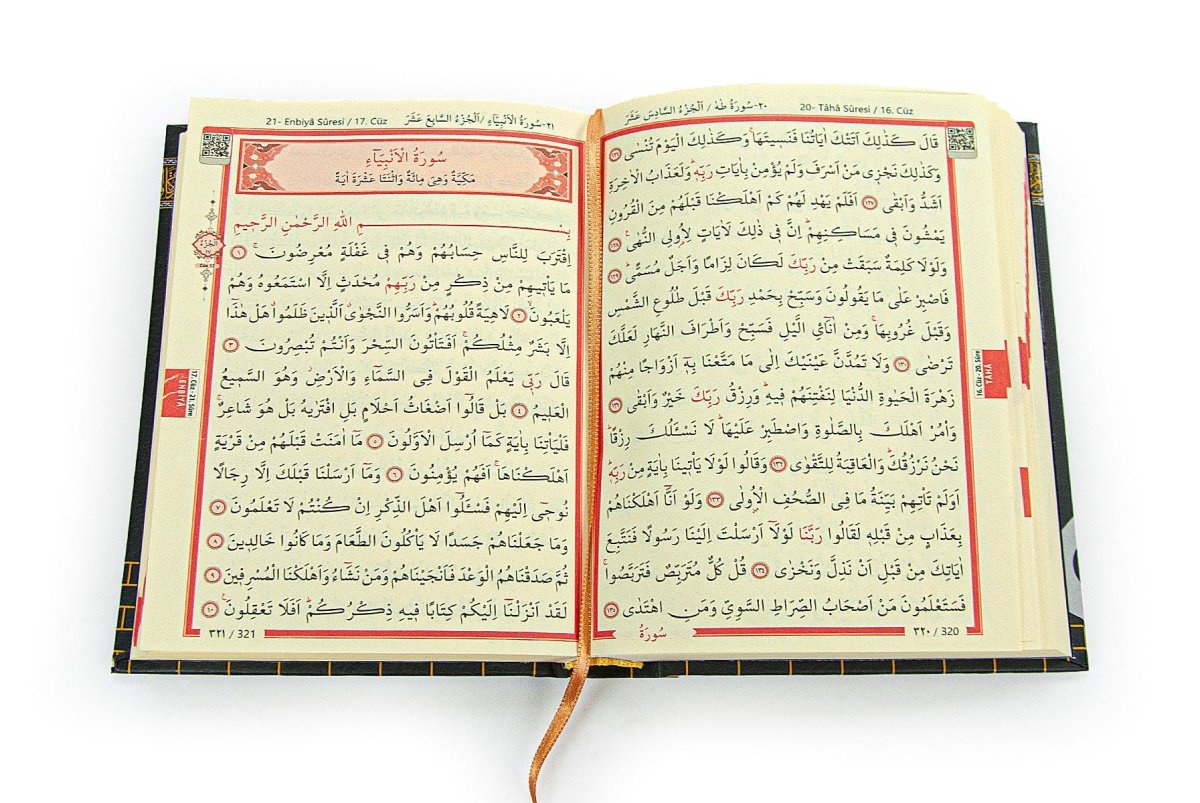 ٢٠-سُورَةُ طٰهٰ / اَلْجُزْءُ السَّادِسَ عَشَرَ 20- Tâhâ Sûresi / 16. Cüz
قَالَ كَذٰلِكَ اَتَتْكَ اٰيَاتُنَا فَنَسٖيتَهَاۚ وَكَذٰلِكَ الْيَوْمَ تُنْسٰى ﴿١٢٦﴾
وَكَذٰلِكَ نَجْزٖى مَنْ اَسْرَفَ وَلَمْ يُؤْمِنْ بِاٰيَاتِ رَبِّهٖۜ وَلَعَذَابُ الْاٰخِرَةِ
اَشَدُّ وَاَبْقٰى ﴿١٢٧﴾ اَفَلَمْ يَهْدِ لَهُمْ كَمْ اَهْلَكْنَا قَبْلَهُمْ مِنَ الْقُرُونِ
يَمْشُونَ فٖى مَسَاكِنِهِمْۜ اِنَّ فٖى ذٰلِكَ لَاٰيَاتٍ لِاُولِى النُّهٰى۟ ﴿١٢٨﴾
وَلَوْلَا كَلِمَةٌ سَبَقَتْ مِنْ رَبِّكَ لَكَانَ لِزَامًا وَاَجَلٌ مُسَمًّىۜ ﴿١٢٩﴾
فَاصْبِرْ عَلٰى مَا يَقُولُونَ وَسَبِّحْ بِحَمْدِ رَبِّكَ قَبْلَ طُلُوعِ الشَّمْسِ
وَقَبْلَ غُرُوبِهَاۚ وَمِنْ اٰنَٓائِ الَّيْلِ فَسَبِّحْ وَاَطْرَافَ النَّهَارِ لَعَلَّكَ
تَرْضٰى ﴿١٣٠﴾ وَلَا تَمُدَّنَّ عَيْنَيْكَ اِلٰى مَا مَتَّعْنَا بِهٖٓ اَزْوَاجًا مِنْهُمْ
زَهْرَةَ الْحَيٰوةِ الدُّنْيَا لِنَفْتِنَهُمْ فٖيهِۜ وَرِزْقُ رَبِّكَ خَيْرٌ وَاَبْقٰى ﴿١٣١﴾
وَأْمُرْ اَهْلَكَ بِالصَّلٰوةِ وَاصْطَبِرْ عَلَيْهَاۜ لَا نَسْـَٔلُكَ رِزْقًاۜ
نَحْنُ نَرْزُقُكَۜ وَالْعَاقِبَةُ لِلتَّقْوٰى ﴿١٣٢﴾ وَقَالُوا لَوْلَا يَأْتٖينَا بِاٰيَةٍ مِنْ رَبِّهٖۜ
اَوَلَمْ تَأْتِهِمْ بَيِّنَةُ مَا فِى الصُّحُفِ الْاُولٰى ﴿١٣٣﴾ وَلَوْ اَنَّٓا اَهْلَكْنَاهُمْ
بِعَذَابٍ مِنْ قَبْلِهٖ لَقَالُوا رَبَّنَا لَوْلَٓا اَرْسَلْتَ اِلَيْنَا رَسُولًا فَنَتَّبِعَ
اٰيَاتِكَ مِنْ قَبْلِ اَنْ نَذِلَّ وَنَخْزٰى ﴿١٣٤﴾ قُلْ كُلٌّ مُتَرَبِّصٌ فَتَرَبَّصُواۚ
فَسَتَعْلَمُونَ مَنْ اَصْحَابُ الصِّرَاطِ السَّوِىِّ وَمَنِ اهْتَدٰى ﴿١٣٥﴾
سُورَةُ
٣٢٠ / 320
16. Cüz - 20. Sûre
TÂHÂ
٢١-سُورَةُ الْاَنْبِيَٓاءِ /اَلْجُزْءُ السَّابِعَ عَشَرَ 21- Enbiyâ Sûresi / 17. Cüz
سُورَةُ الْاَنْبِيَٓاءِ
مَكِّيَّةٌ وَهِىَ مِائَةٌ وَاثْنَتَا عَشْرَةَ اٰيَةً
بِسْمِ اللّٰهِ الرَّحْمٰنِ الرَّحٖيمِ
اِقْتَرَبَ لِلنَّاسِ حِسَابُهُمْ وَهُمْ فٖى غَفْلَةٍ مُعْرِضُونَۚ ﴿١﴾
مَا يَأْتٖيهِمْ مِنْ ذِكْرٍ مِنْ رَبِّهِمْ مُحْدَثٍ اِلَّا اسْتَمَعُوهُ وَهُمْ
يَلْعَبُونَۙ ﴿٢﴾ لَاهِيَةً قُلُوبُهُمْۜ وَاَسَرُّوا النَّجْوٰىۗ اَلَّذٖينَ ظَلَمُواۗ هَلْ هٰذَٓا
اِلَّا بَشَرٌ مِثْلُكُمْۚ اَفَتَأْتُونَ السِّحْرَ وَاَنْتُمْ تُبْصِرُونَ ﴿٣﴾
قَالَ رَبّٖى يَعْلَمُ الْقَوْلَ فِى السَّمَٓاءِ وَالْاَرْضِۘ وَهُوَ السَّمٖيعُ
الْعَلٖيمُ ﴿٤﴾ بَلْ قَالُٓوا اَضْغَاثُ اَحْلَامٍ بَلِ افْتَرٰيهُ بَلْ هُوَ شَاعِرٌۚ
فَلْيَأْتِنَا بِاٰيَةٍ كَمَٓا اُرْسِلَ الْاَوَّلُونَ ﴿٥﴾ مَٓا اٰمَنَتْ قَبْلَهُمْ مِنْ قَرْيَةٍ
اَهْلَكْنَاهَاۚ اَفَهُمْ يُؤْمِنُونَ ﴿٦﴾ وَمَٓا اَرْسَلْنَا قَبْلَكَ اِلَّا رِجَالًا
نُوحٖٓى اِلَيْهِمْ فَسْـَٔلُٓوا اَهْلَ الذِّكْرِ اِنْ كُنْتُمْ لَا تَعْلَمُونَ ﴿٧﴾
وَمَا جَعَلْنَاهُمْ جَسَدًا لَا يَأْكُلُونَ الطَّعَامَ وَمَا كَانُوا خَالِدٖينَ ﴿٨﴾
ثُمَّ صَدَقْنَاهُمُ الْوَعْدَ فَاَنْجَيْنَاهُمْ وَمَنْ نَشَٓاءُ وَاَهْلَكْنَا الْمُسْرِفٖينَ ﴿٩﴾
لَقَدْ اَنْزَلْنَٓا اِلَيْكُمْ كِتَابًا فٖيهِ ذِكْرُكُمْۜ اَفَلَا تَعْقِلُونَ۟ ﴿١٠﴾
٣٢١ / 321
اَلْجُزْءُ
17. Cüz - 21. Sûre
ENBİYÂ